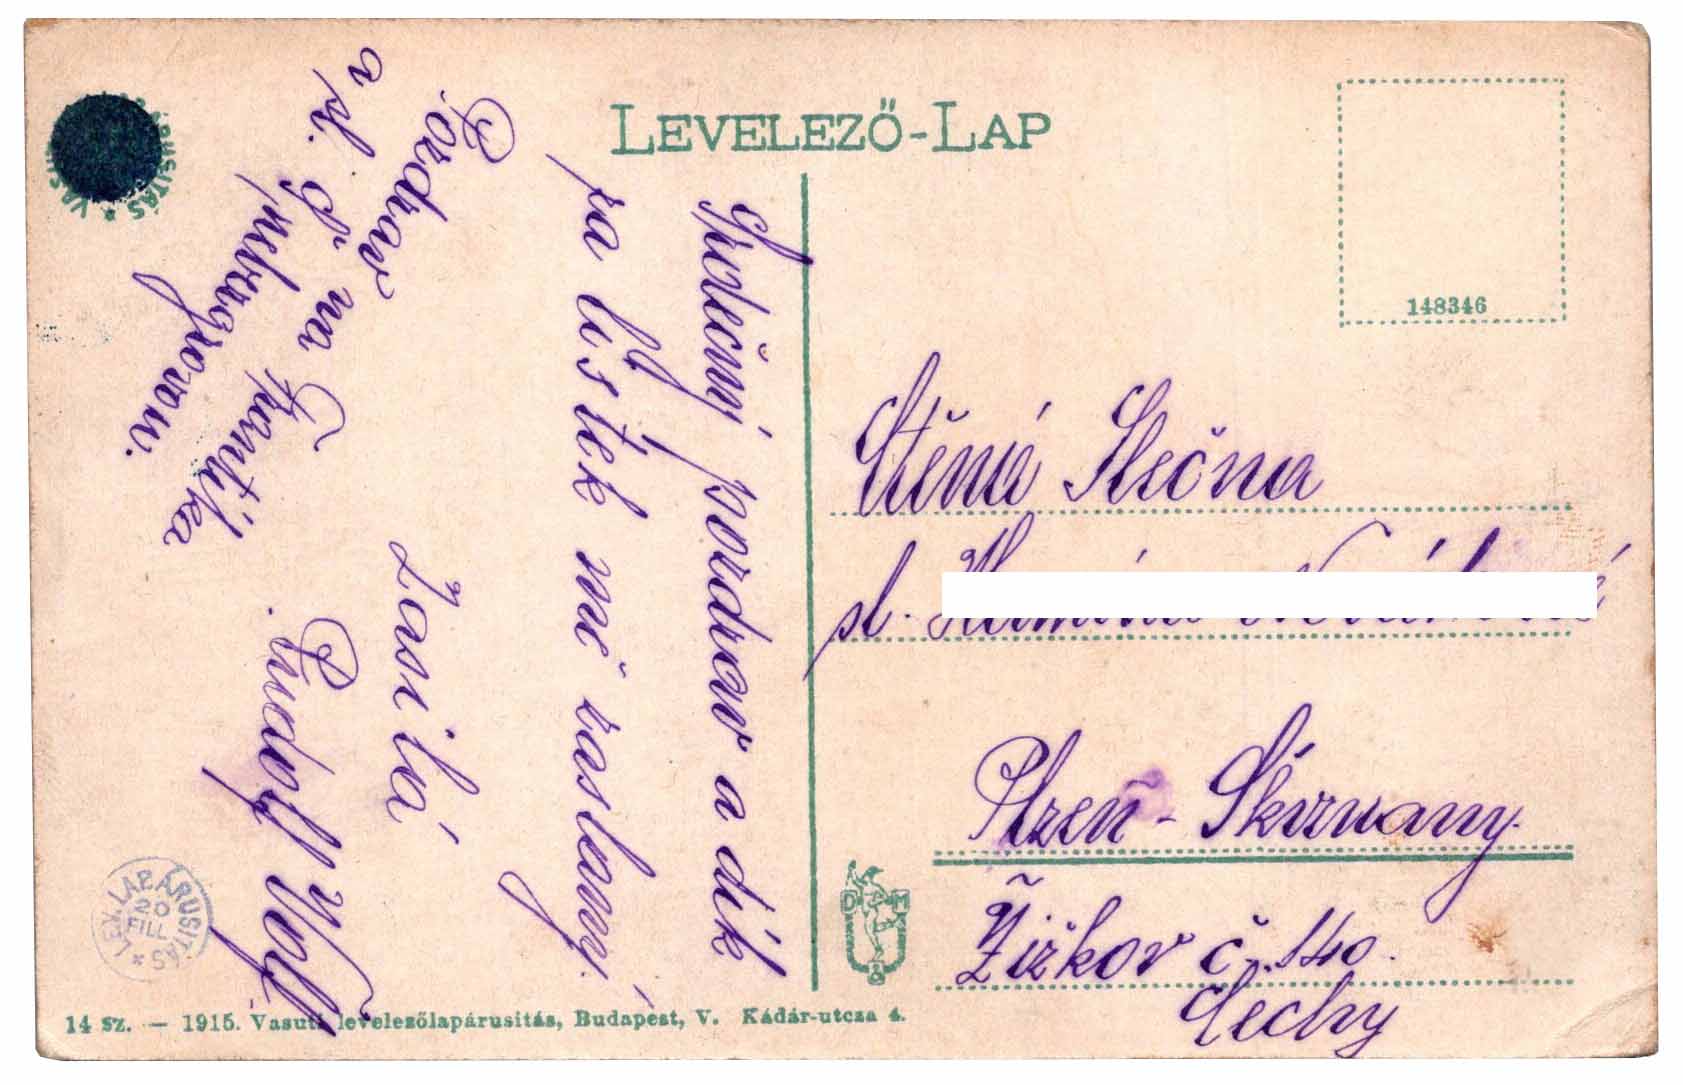 LEVELEZŐ-LAP
148346
Srdečný pozdrav a dík
za lístek mě zaslaný.
Zasilá
Rudolf Wolf
Pozdrav na Frantíka
a sl.
Ctěná Slečna
sl.
Plzeň - Škvrňany.
Žižkov č. 140.
Čechy
D M
LEV. LAPÁRUSITÁS
20
FILL
14 SZ. — 1915. Vasuti levelezőlapárusitás, Budapest, V. Kádár-utcza 4.